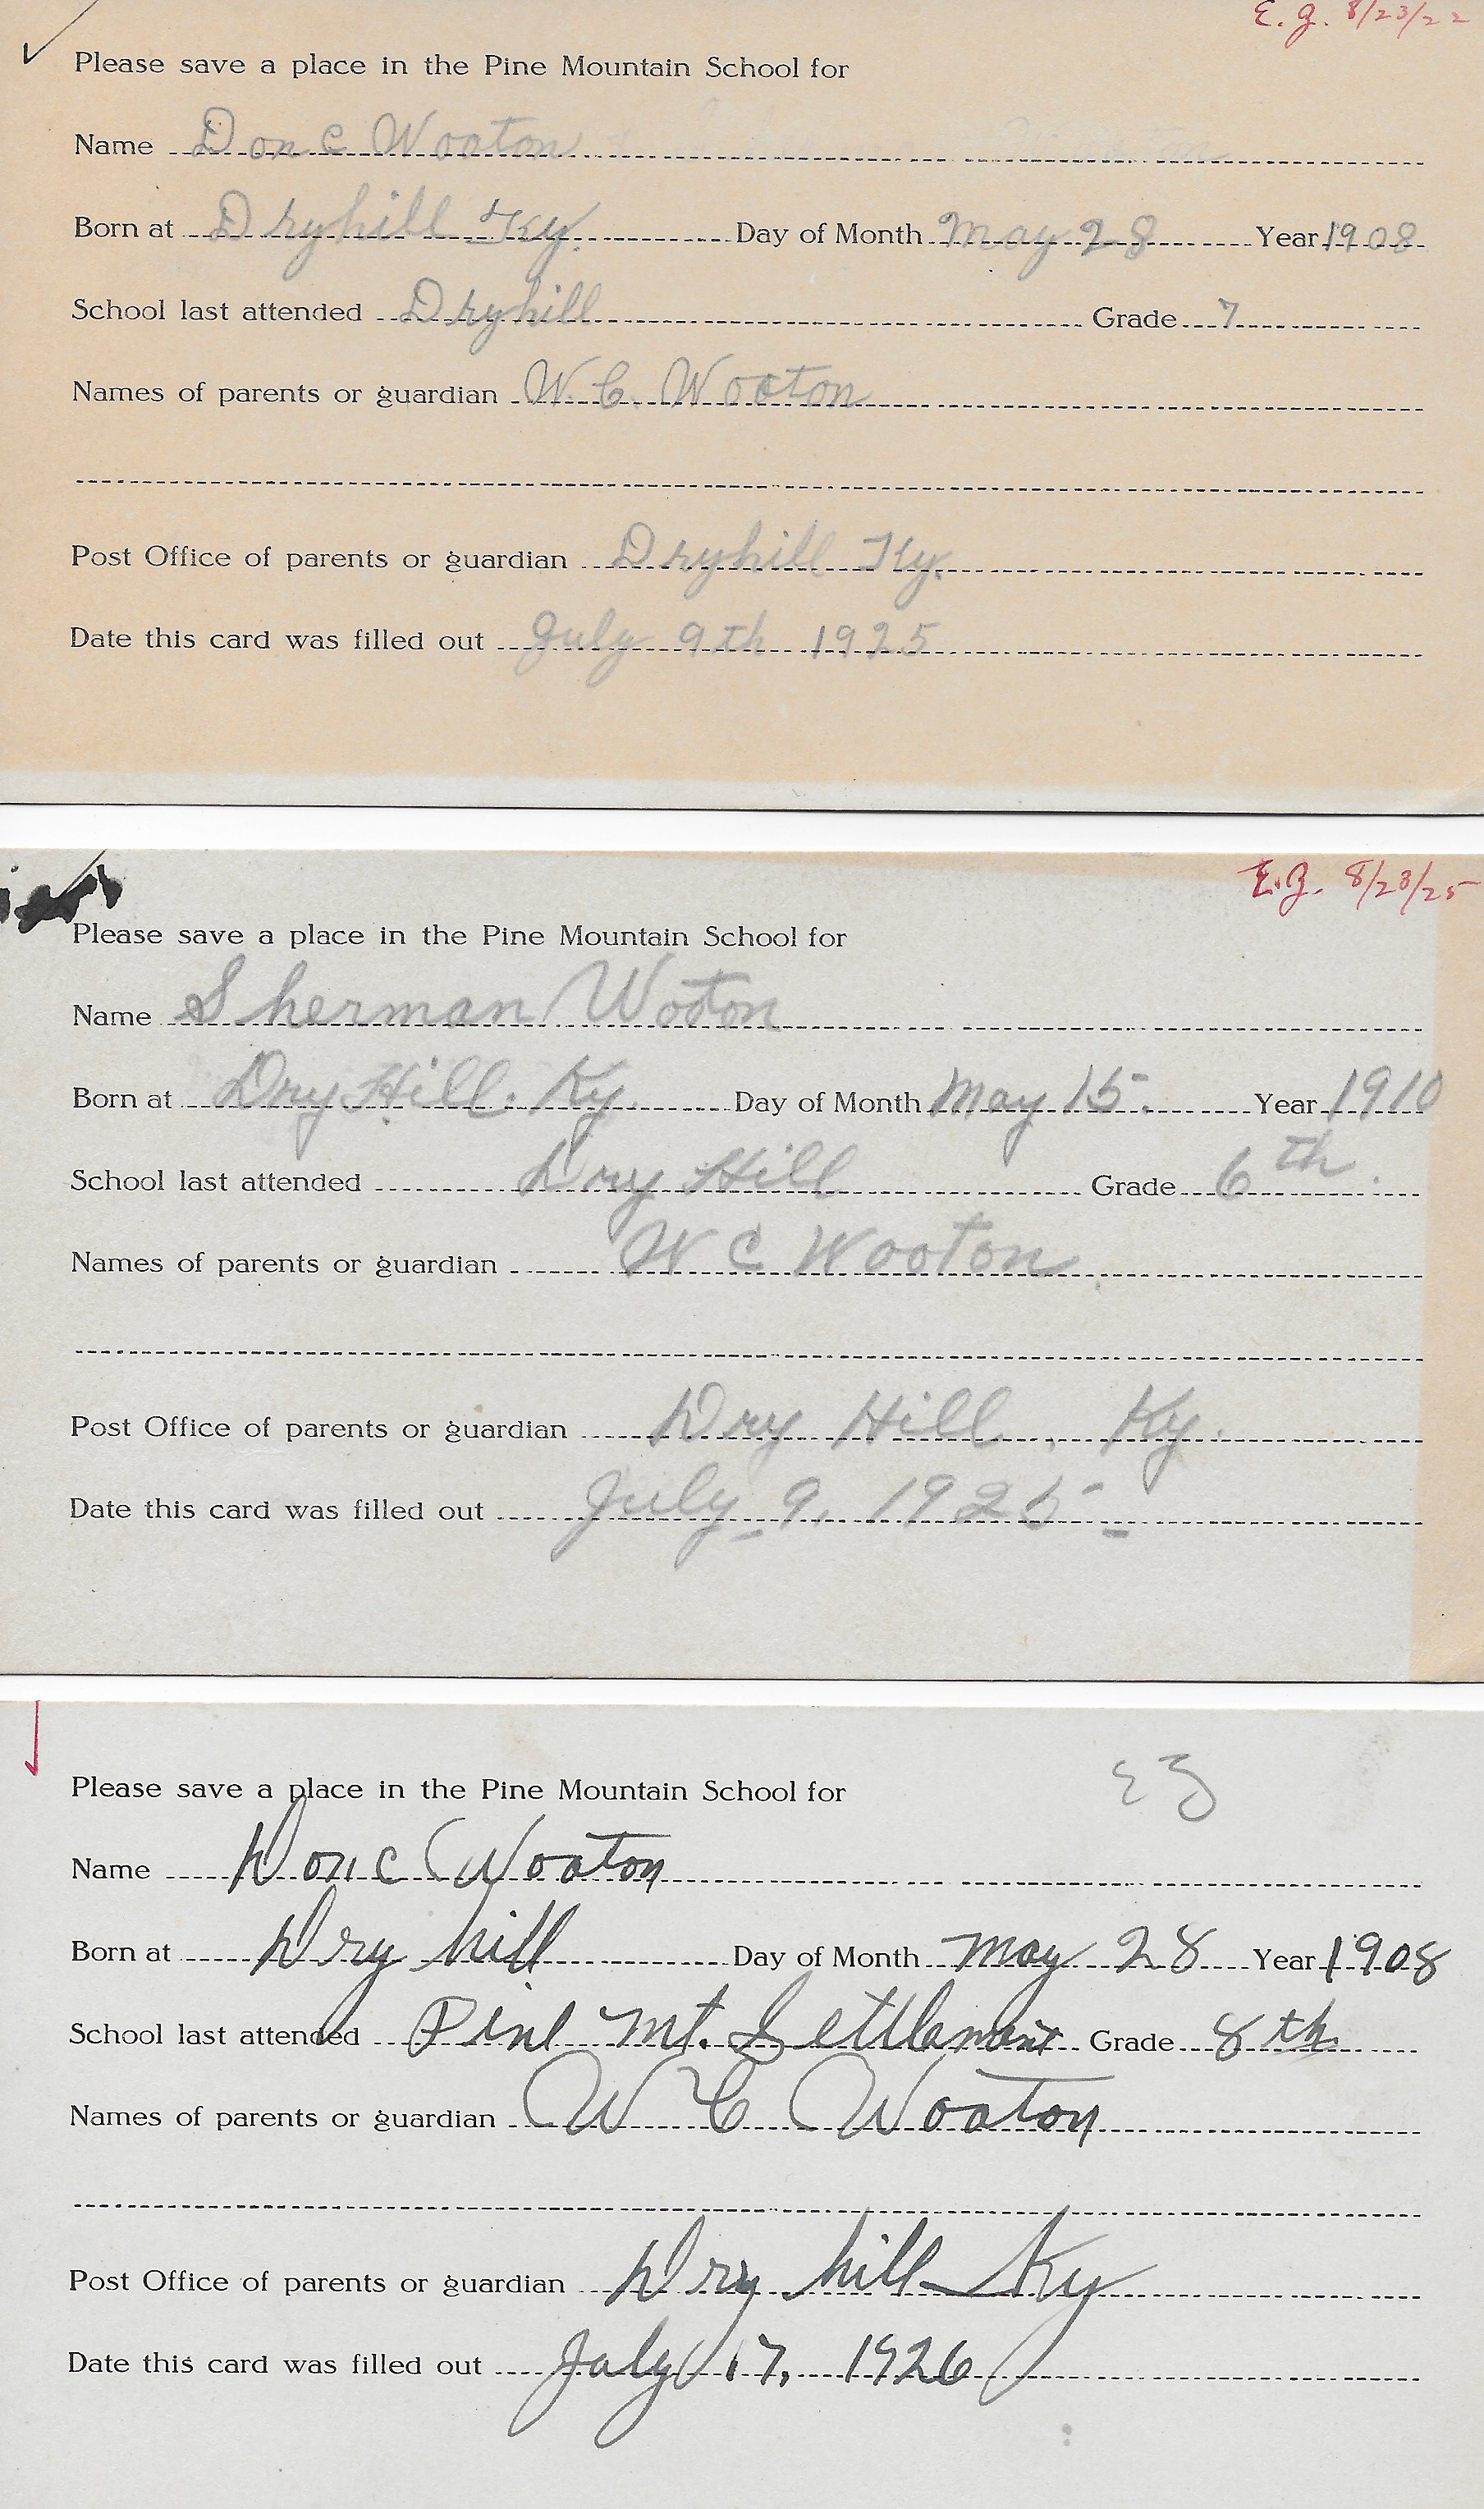 E. g. 8/23/22
Please save a place in the Pine Mountain School for
Name Don C Wooton
Born at Dryhill Ky. Day of Month May 28 Year 1908
School last attended Dryhill Grade 7
Names of parents or guardian W. C. Wooton
Post Office of parents or guardian Dryhill Ky.
Date this card was filled out July 9th 1925
E.Z. 8/23/25
Please save a place in the Pine Mountain School for
Name Sherman Wooton
Born at Dry Hill. Ky. Day of Month May 15. Year 1910
School last attended Dry Hill Grade 6th.
Names of parents or guardian W C Wooton
Post Office of parents or guardian Dry Hill, Ky.
Date this card was filled out July 9, 1925
EZ
Please save a place in the Pine Mountain School for
Name Don C Wooton
Born at Dry hill Day of Month May 28 Year 1908
School last attended Pine Mt. Settlement Grade 8th
Names of parents or guardian W C Wooton
Post Office of parents or guardian Dry hill Ky
Date this card was filled out July 17, 1926